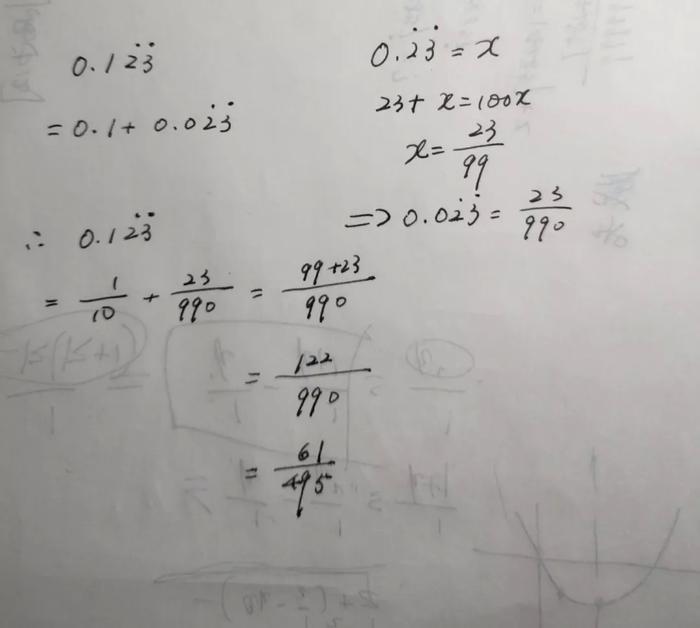 0.12̇3̇
= 0.1 + 0.02̇3̇
0.2̇3̇ = x
23 + x = 100x
x = 23/99
=> 0.02̇3̇ = 23/990
∴ 0.12̇3̇
= 1/10 + 23/990 = (99+23)/990
= 122/990
= 61/495